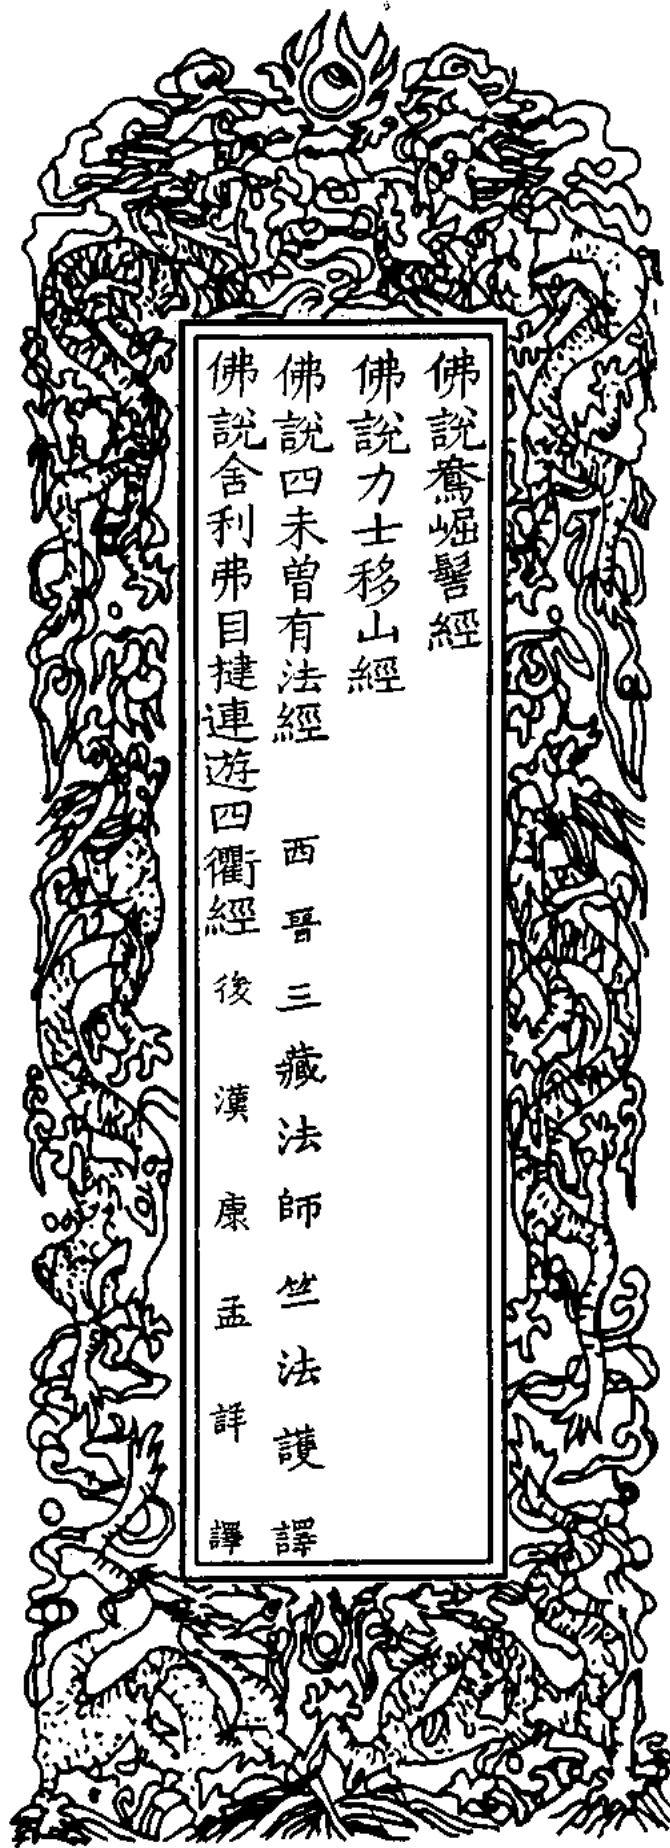 佛說鴦崛髻經
佛說力士移山經
佛說四未曾有法經 西晉三藏法師竺法護譯
佛說舍利弗目揵連遊四衢經 後漢康孟詳譯